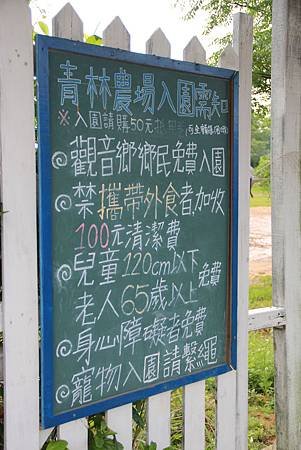 青林農場入園需知
※入園請購50元抵用
◎觀音鄉鄉民免費入園
◎禁攜帶外食者,加收
100元清潔費
◎兒童120cm以下免費
老人65歲以上
◎身心障礙者免費
◎寵物入園請繫繩